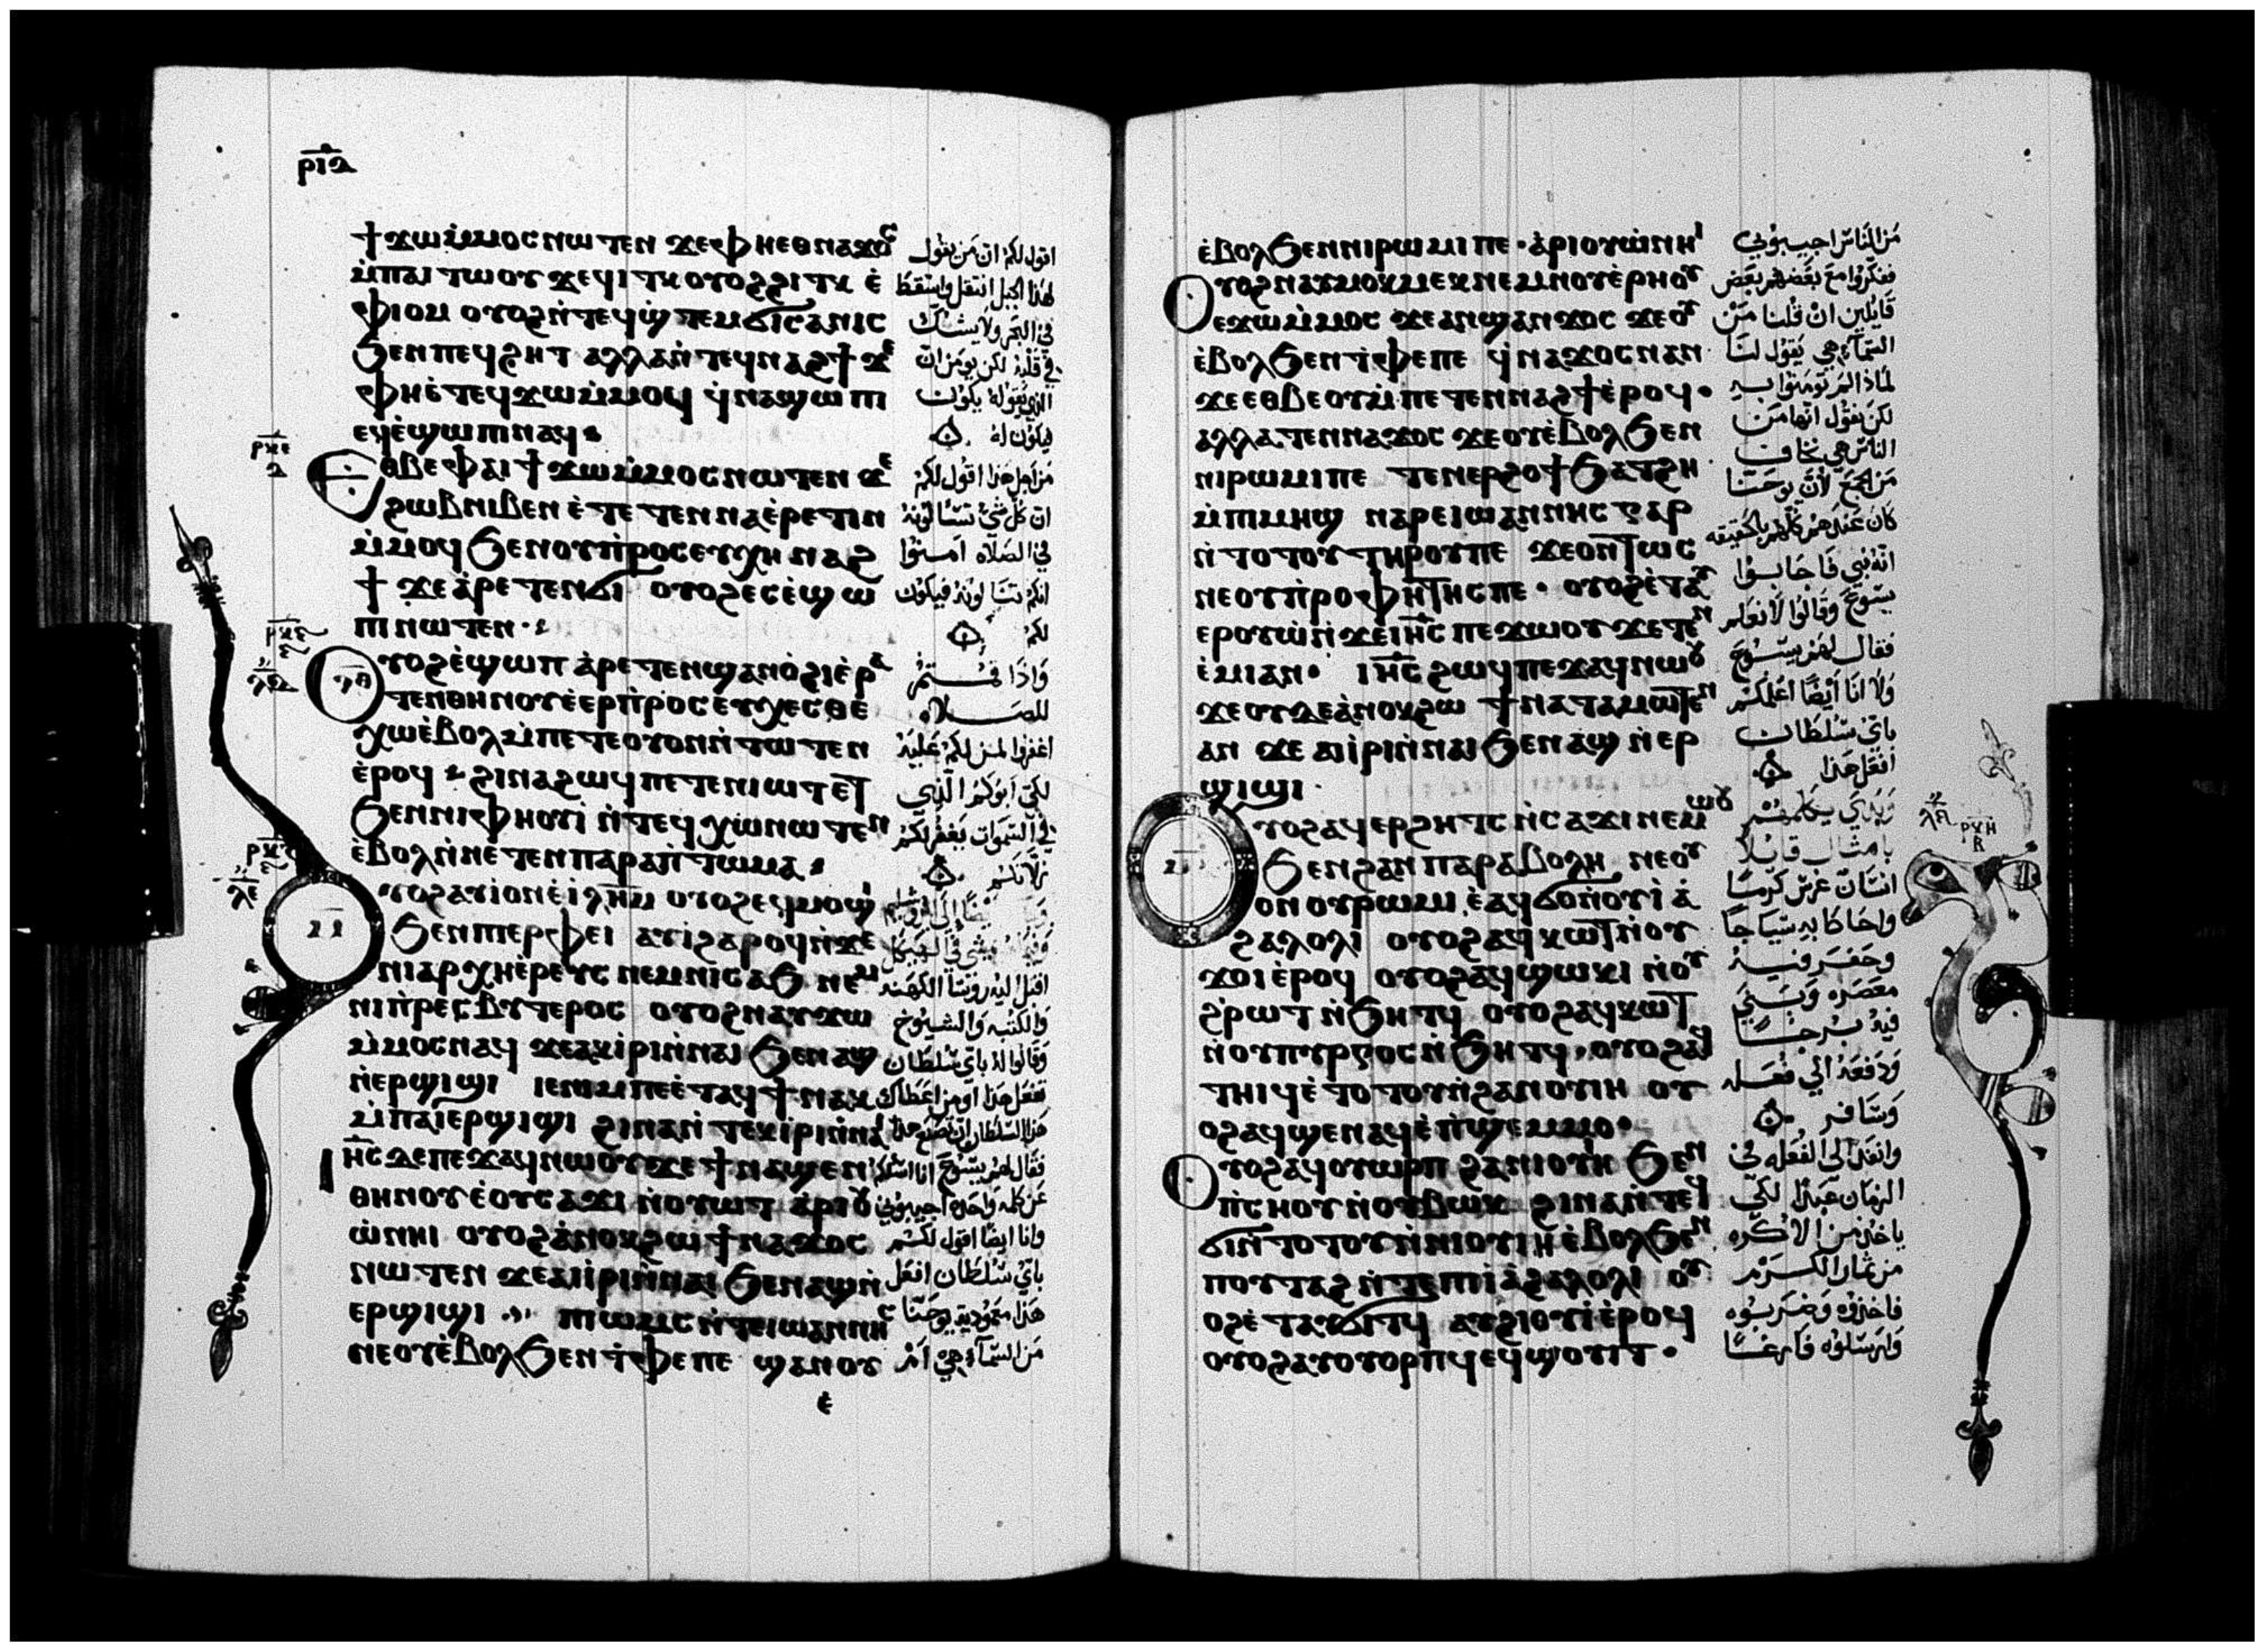 ⲣⲓⲇ
ϯϫⲱ ⲙ̀ⲙⲟⲥ ⲛⲱⲧⲉⲛ ϫⲉ ⲫⲏⲉⲑⲛⲁϫⲟⲥ
ⲙ̀ⲡⲁⲓⲧⲱⲟⲩ ϫⲉ ϥⲓⲧⲕ ⲟⲩⲟϩ ϩⲓⲧⲕ ⲉ̀
ⲫⲓⲟⲙ ⲟⲩⲟϩ ⲛ̀ⲧⲉϥϣ̀ⲧⲉⲙϭⲓⲥⲁⲛⲓⲥ
ϧⲉⲛ ⲡⲉϥϩⲏⲧ ⲁⲗⲗⲁ ⲛ̀ⲧⲉϥⲛⲁϩϯ ϫⲉ
ⲫⲏⲉ̀ⲧⲉϥϫⲱ ⲙ̀ⲙⲟϥ ϥ̀ⲛⲁϣⲱⲡⲓ
ⲉϥⲉ̀ϣⲱⲡⲓ ⲛⲁϥ
ⲉⲑⲃⲉ ⲫⲁⲓ ϯϫⲱ ⲙ̀ⲙⲟⲥ ⲛⲱⲧⲉⲛ ϫⲉ
ϩⲱⲃ ⲛⲓⲃⲉⲛ ⲉ̀ⲧⲉⲧⲉⲛⲛⲁⲉ̀ⲣⲉⲧⲓⲛ
ⲙ̀ⲙⲟϥ ϧⲉⲛ ⲟⲩⲡ̀ⲣⲟⲥⲉⲩⲭⲏ ⲛⲁϩ
ϯ ϫⲉ ⲁ̀ⲣⲉⲧⲉⲛϭⲓ ⲟⲩⲟϩ ⲉⲥⲉ̀ϣⲱ
ⲡⲓ ⲛⲱⲧⲉⲛ
ⲟⲩⲟϩ ⲉ̀ϣⲱⲡ ⲁ̀ⲣⲉⲧⲉⲛϣⲁⲛⲟ̀ϩⲓ ⲉ̀ⲣⲁ
ⲧⲉⲛⲑⲏⲛⲟⲩ ⲉ̀ⲉⲣⲡ̀ⲣⲟⲥⲉⲩⲭⲉⲥⲑⲉ
ⲭⲱ ⲉ̀ⲃⲟⲗ ⲙ̀ⲡⲉⲧⲉ ⲟⲩⲟⲛⲛ̀ⲧⲱⲧⲉⲛ
ⲉ̀ⲣⲟϥ ϩⲓⲛⲁ ϩⲱϥ ⲡⲉⲧⲉⲛⲓⲱⲧ ⲉⲧ
ϧⲉⲛ ⲛⲓⲫⲏⲟⲩⲓ̀ ⲛ̀ⲧⲉϥⲭⲱ ⲛⲱⲧⲉⲛ
ⲉ̀ⲃⲟⲗ ⲛ̀ⲛⲉⲧⲉⲛⲡⲁⲣⲁⲡ̀ⲧⲱⲙⲁ
ⲟⲩⲟϩ ⲁⲩⲓ̀ ⲟⲛ ⲉ̀ⲓⲗⲏⲙ ⲟⲩⲟϩ ⲉϥⲙⲟϣⲓ
ϧⲉⲛ ⲡⲓⲉⲣⲫⲉⲓ ⲁⲩⲓ̀ ϩⲁⲣⲟϥ ⲛ̀ϫⲉ
ⲛⲓⲁⲣⲭⲏⲉ̀ⲣⲉⲩⲥ ⲛⲉⲙ ⲛⲓⲥⲁϧ ⲛⲉⲙ
ⲛⲓⲡ̀ⲣⲉⲥⲃⲩⲧⲉⲣⲟⲥ ⲟⲩⲟϩ ⲛⲁⲩϫⲱ
ⲙ̀ⲙⲟⲥ ⲛⲁϥ ϫⲉ ⲁⲕⲓ̀ⲣⲓ ⲛ̀ⲛⲁⲓ ϧⲉⲛ ⲁϣ
ⲛ̀ⲉⲣϣⲓϣⲓ ⲓⲉ ⲛⲓⲙ ⲡⲉ ⲉ̀ⲧⲁϥϯ ⲛⲁⲕ
ⲙ̀ⲡⲁⲓⲉⲣϣⲓϣⲓ ϩⲓⲛⲁ ⲛ̀ⲧⲉⲕⲓ̀ⲣⲓ ⲛ̀ⲛⲁⲓ
ⲓⲏⲥ ⲇⲉ ⲡⲉϫⲁϥ ⲛⲱⲟⲩ ϫⲉ ϯⲛⲁϣⲉⲛ
ⲑⲏⲛⲟⲩ ⲉ̀ⲟⲩⲥⲁϫⲓ ⲛ̀ⲟⲩⲱⲧ ⲁ̀ⲣⲓⲟⲩ
ⲱ̀ ⲛⲏⲓ ⲟⲩⲟϩ ⲁ̀ⲛⲟⲕ ϩⲱ ϯⲛⲁϫⲟⲥ
ⲛⲱⲧⲉⲛ ϫⲉ ⲁⲓⲓ̀ⲣⲓ ⲛ̀ⲛⲁⲓ ϧⲉⲛ ⲁϣ ⲛ̀
ⲉⲣϣⲓϣⲓ ⲡⲓⲱⲙⲥ ⲛ̀ⲧⲉ ⲓⲱⲁⲛⲛⲏⲥ
ⲛⲉ ⲟⲩⲉ̀ⲃⲟⲗ ϧⲉⲛ ⲧ̀ⲫⲉ ⲡⲉ ϣⲁⲛ ⲟⲩ
ⲉ̀
اقول لكم ان من يقول
لهذا الجبل انتقل واسقط
في البحر ولا يشك
في قلبه لكن يومن ان
الذي يقوله يكون
فيكون له
من اجل هذا اقول لكم
ان كل شي تسالونه
في الصلاه امنوا
انكم تنالونه فيكون
لكم
واذا قمتم
للصلاه
اغفروا لمن لكم عليه
لكي ابوكم الذي
في السموات يغفر لكم
زلاتكم
اقبل اليه روسا الكهنه
والكتبه والشيوخ
وقالوا له باي سلطان
تفعل هذا او من اعطاك
فقال لهم يسوع انا اسالكم
عن كلمه واحده اجيبوني
وانا ايضا اقول لكم
باي سلطان افعل
هذا معموديه يوحنا
من السماء هي ام
ⲉ̀ⲃⲟⲗ ϧⲉⲛ ⲛⲓⲣⲱⲙⲓ ⲡⲉ ⲁ̀ⲣⲓⲟⲩⲱ̀ ⲛⲏⲓ
ⲟⲩⲟϩ ⲛⲁⲩⲙⲟⲕⲙⲉⲕ ⲛⲉⲙ ⲛⲟⲩⲉ̀ⲣⲏⲟⲩ
ⲉⲩϫⲱ ⲙ̀ⲙⲟⲥ ϫⲉ ⲁⲛϣⲁⲛϫⲟⲥ ϫⲉ ⲟⲩ
ⲉ̀ⲃⲟⲗ ϧⲉⲛ ⲧ̀ⲫⲉ ⲡⲉ ϥ̀ⲛⲁϫⲟⲥ ⲛⲁⲛ
ϫⲉ ⲉⲑⲃⲉⲟⲩ ⲙ̀ⲡⲉⲧⲉⲛⲛⲁϩϯ ⲉ̀ⲣⲟϥ
ⲁⲗⲗⲁ ⲧⲉⲛⲛⲁϫⲟⲥ ϫⲉ ⲟⲩⲉ̀ⲃⲟⲗ ϧⲉⲛ
ⲛⲓⲣⲱⲙⲓ ⲡⲉ ⲧⲉⲛⲉⲣϩⲟϯ ϧⲁⲧϩⲏ
ⲙ̀ⲡⲓⲙⲏϣ ⲛⲁⲣⲉ ⲓⲱⲁⲛⲛⲏⲥ ⲅⲁⲣ
ⲛ̀ⲧⲟⲧⲟⲩ ⲧⲏⲣⲟⲩ ⲡⲉ ϫⲉ ⲟⲛⲧⲱⲥ
ⲛⲉ ⲟⲩⲡ̀ⲣⲟⲫⲏⲧⲏⲥ ⲡⲉ ⲟⲩⲟϩ ⲉ̀ⲧⲁⲩ
ⲉⲣⲟⲩⲱ̀ ⲛ̀ϫⲉ ⲓⲏⲥ ⲡⲉϫⲱⲟⲩ ϫⲉ ⲧⲉⲛ
ⲉ̀ⲙⲓ ⲁⲛ ⲓⲏⲥ ϩⲱϥ ⲡⲉϫⲁϥ ⲛⲱⲟⲩ
ϫⲉ ⲟⲩⲇⲉ ⲁ̀ⲛⲟⲕ ϩⲱ ϯⲛⲁⲧⲁⲙⲱⲧⲉⲛ
ⲁⲛ ϫⲉ ⲁⲓⲓ̀ⲣⲓ ⲛ̀ⲛⲁⲓ ϧⲉⲛ ⲁϣ ⲛ̀ⲉⲣ
ϣⲓϣⲓ
ⲟⲩⲟϩ ⲁϥⲉⲣϩⲏⲧⲥ ⲛ̀ⲥⲁϫⲓ ⲛⲉⲙⲱⲟⲩ
ϧⲉⲛ ϩⲁⲛⲡⲁⲣⲁⲃⲟⲗⲏ ⲛⲉ ⲟⲩ
ⲟⲛ ⲟⲩⲣⲱⲙⲓ ⲉ̀ⲁϥϭⲟ ⲛ̀ⲟⲩⲓ̀ⲁ̀
ϩⲁⲗⲟⲗⲓ ⲟⲩⲟϩ ⲁϥⲕⲱⲧ ⲛ̀ⲟⲩ
ⲭⲟⲓ ⲉ̀ⲣⲟϥ ⲟⲩⲟϩ ⲁϥϣⲱⲕⲓ ⲛ̀ⲟⲩ
ϩ̀ⲣⲱⲧ ⲛ̀ϧⲏⲧϥ ⲟⲩⲟϩ ⲁϥⲕⲱⲧ
ⲛ̀ⲟⲩⲡⲩⲣⲅⲟⲥ ⲛ̀ϧⲏⲧϥ ⲟⲩⲟϩ ⲁϥ
ⲧⲏⲓϥ ⲉ̀ⲧⲟⲧⲟⲩ ⲛ̀ϩⲁⲛⲟⲩⲓⲏ ⲟⲩ
ⲟϩ ⲁϥϣⲉⲛⲁϥ ⲉ̀ⲡ̀ϣⲉⲙⲙⲟ
ⲟⲩⲟϩ ⲁϥⲟⲩⲱⲣⲡ ϩⲁ ⲛⲓⲟⲩⲓⲏ ϧⲉⲛ
ⲡ̀ⲥⲏⲟⲩ ⲛ̀ⲟⲩⲃⲱⲕ ϩⲓⲛⲁ ⲛ̀ⲧⲉϥ
ϭⲓ ⲛ̀ⲧⲟⲧⲟⲩ ⲛ̀ⲛⲓⲟⲩⲓⲏ ⲉ̀ⲃⲟⲗ ϧⲉⲛ
ⲡⲟⲩⲧⲁϩ ⲛ̀ⲧⲉ ⲡⲓⲓⲁ̀ϩⲁⲗⲟⲗⲓ ⲟⲩ
ⲟϩ ⲉ̀ⲧⲁⲩϭⲓⲧϥ ⲁⲩϩⲓⲟⲩⲓ̀ ⲉ̀ⲣⲟϥ
ⲟⲩⲟϩ ⲁⲩⲟⲩⲟⲣⲡϥ ⲉϥϣⲟⲩⲓⲧ
من الناس اجيبوني
ففكروا مع بعضهم بعض
قايلين ان قلنا من
السماء هي يقول لنا
لماذا لم تومنوا به
لكن نقول انها من
الناس هي نخاف
من الجمع لان يوحنا
كان عندهم كلهم بالحقيقه
انه نبي فاجابوا
يسوع وقالوا لا نعلم
فقال لهم يسوع
ولا انا ايضا اعلمكم
باي سلطان
افعل هذا
بامثال قايلا
انسان غرس كرما
واحاط به سياجا
وحفر فيه
معصره وبنى
فيه برجا
ودفعه الى فعله
وسافر
وانفذ الى الفعله في
الزمان عبدا لكي
ياخذ من الاكره
من ثمار الكرم
فاخذوه وضربوه
وارسلوه فارغا